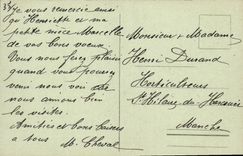 Je vous remercie ainsi
qu'Henriette et ma
petite nièce Marcelle
de vos bons voeux.
Vous nous ferez plaisir
quand vous pourrez
venir nous voir
nous aimons bien
les visites.
Amitiés et bons baisers
a tous M. Cheval
Monsieur & Madame
Henri Durand
Horticulteurs
St Hilaire du Harcouët
Manche